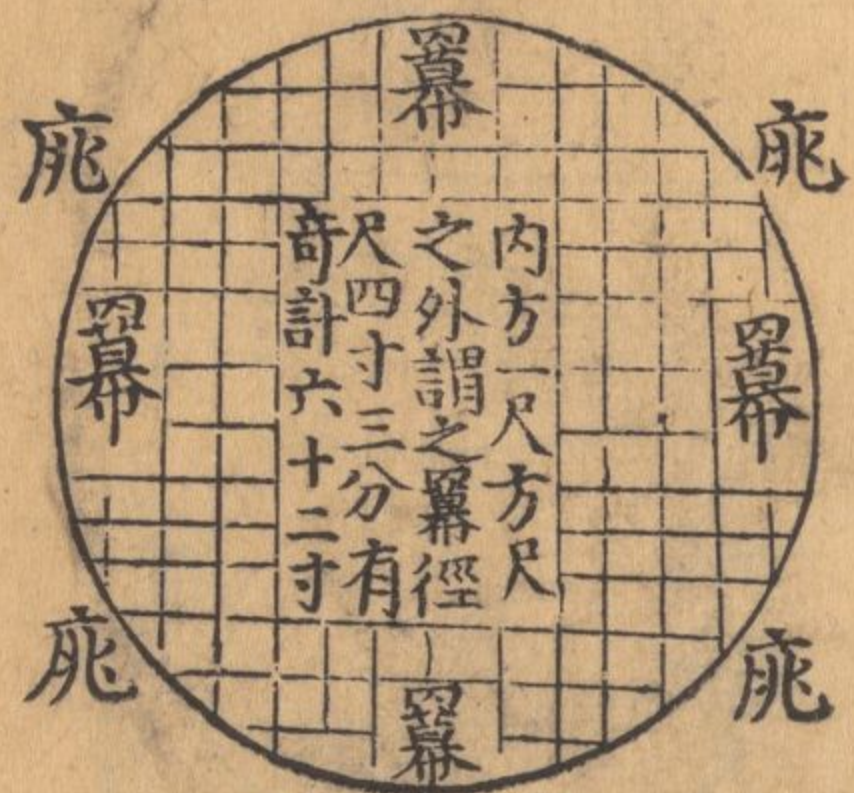 羃
庣
庣
羃
内方一尺方尺
之外謂之羃徑
尺四寸三分有
奇計六十二寸
羃
庣
庣
羃